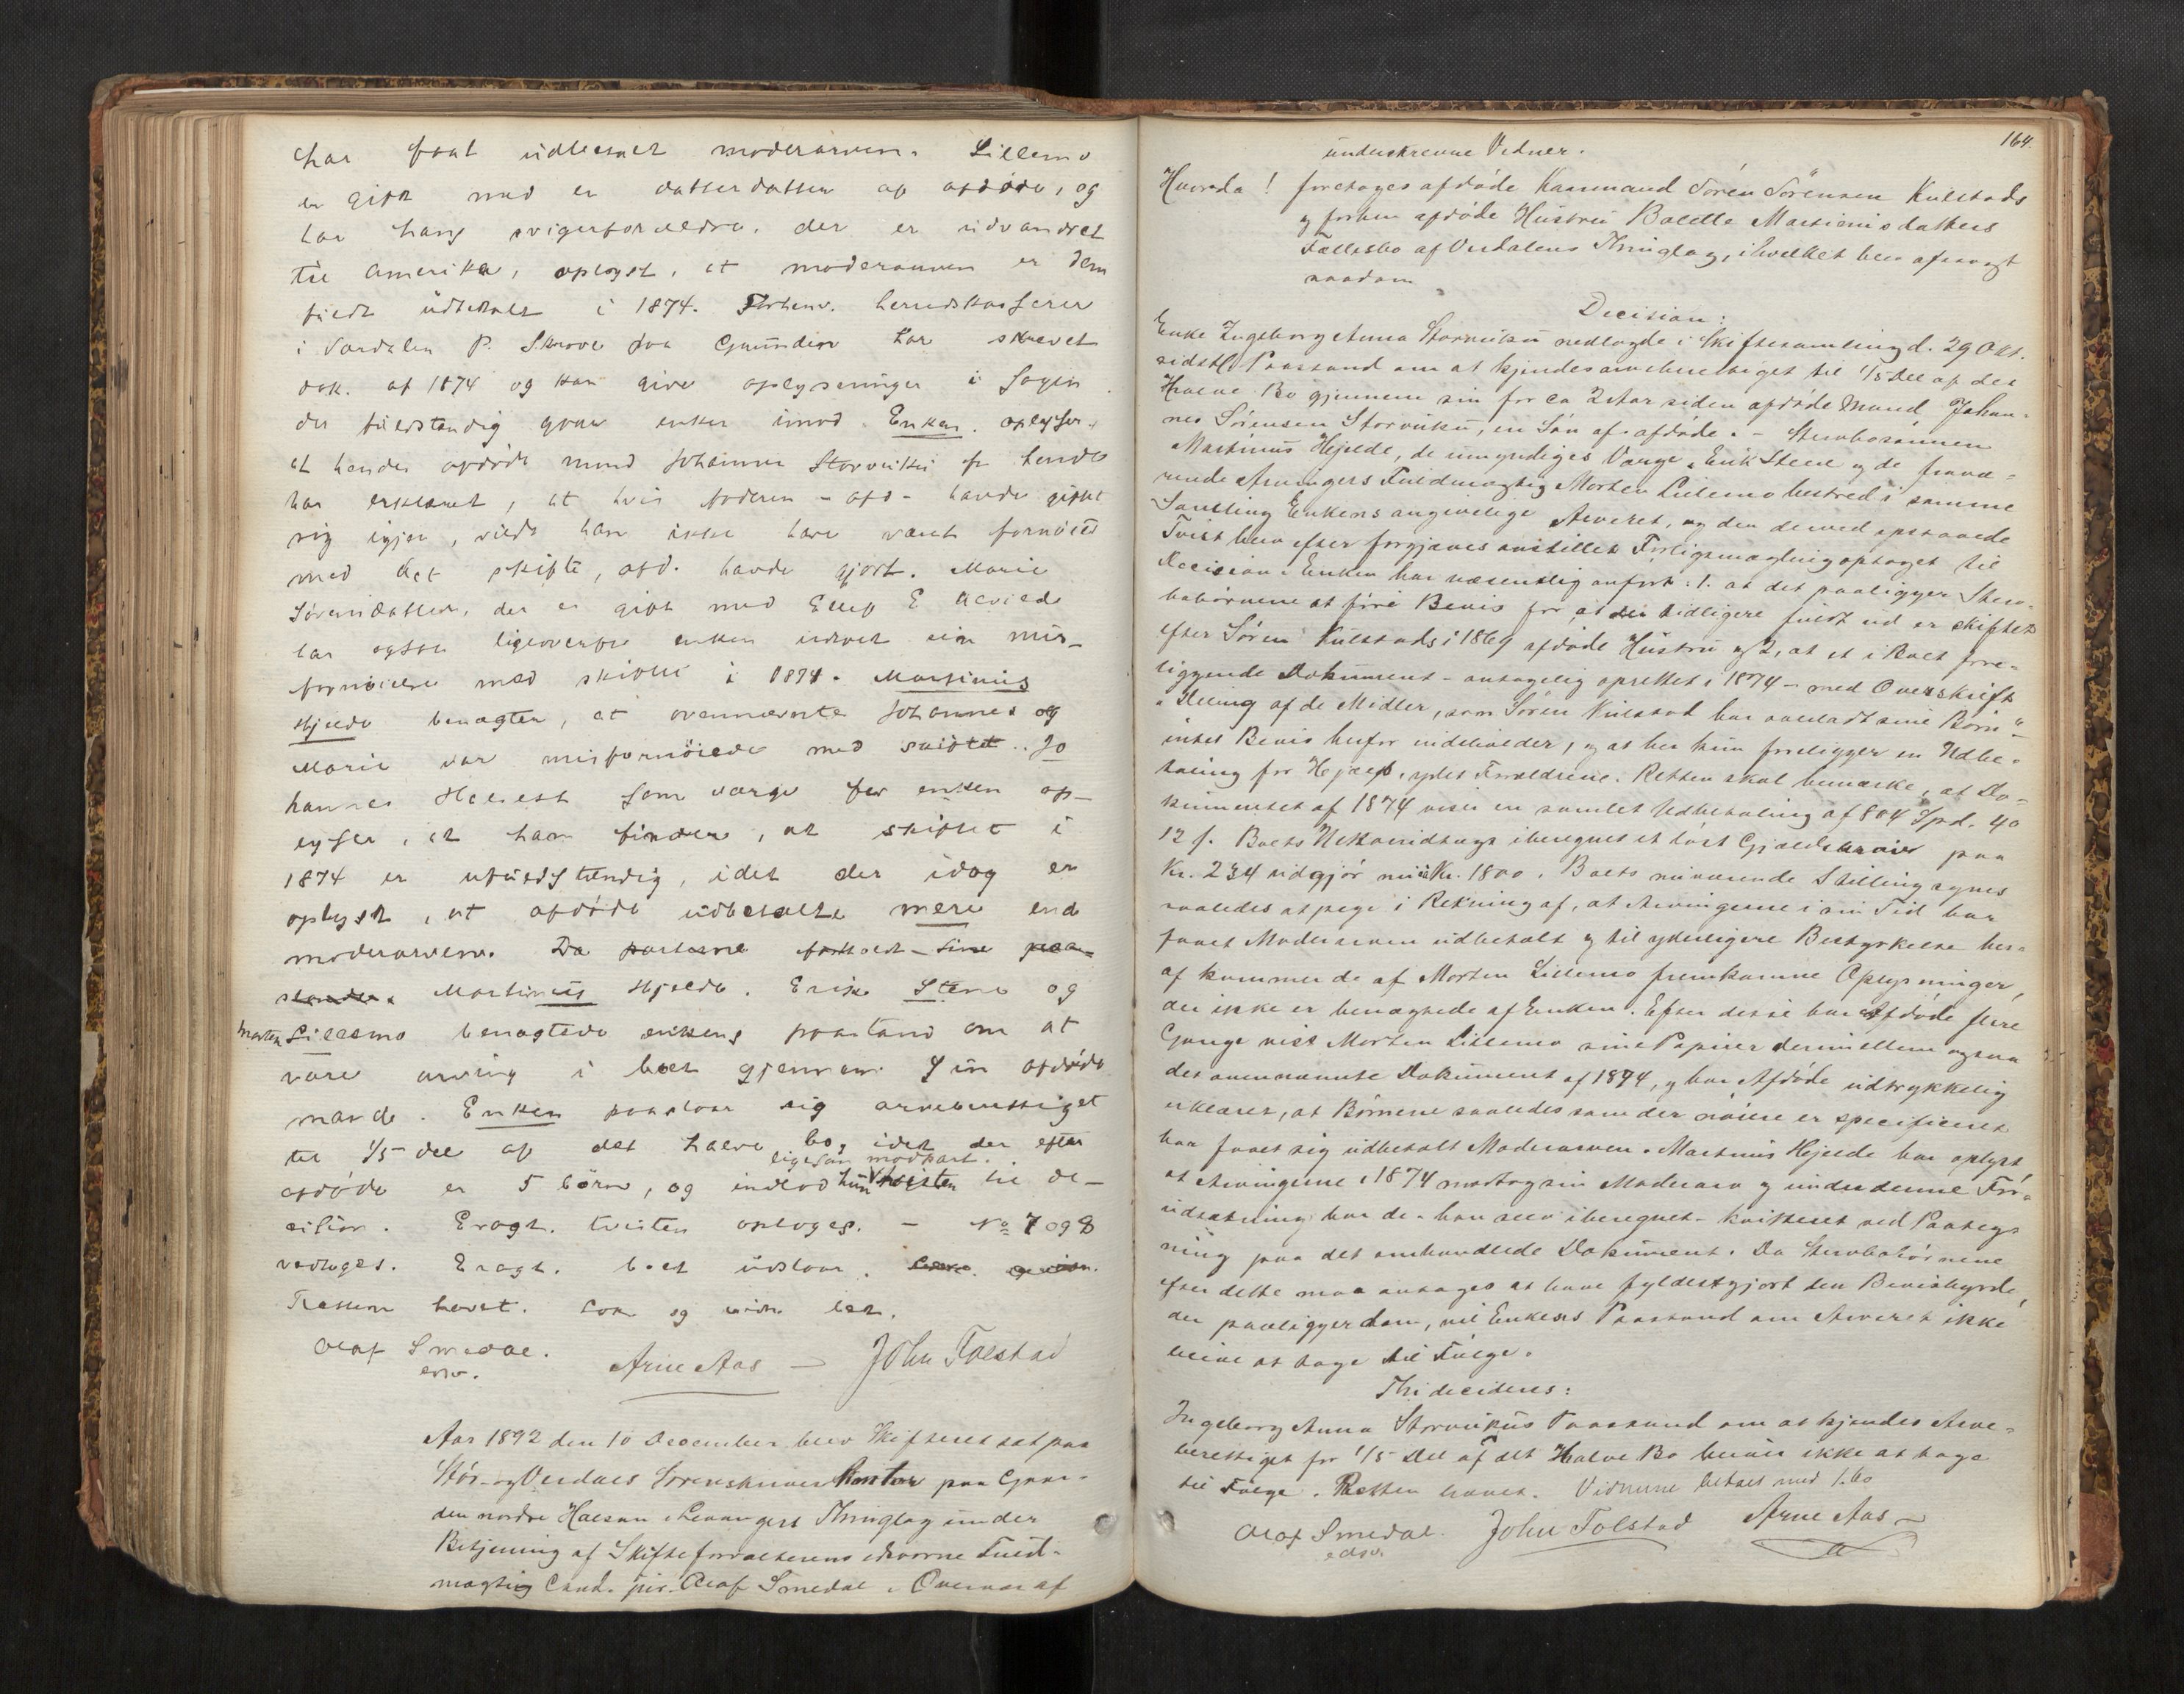 har faat udbetalt moderarven. Lillemo
er gift med en datterdatter af afdøde, og
har hans svigerforældre, der er udvandret
til Amerika, oplyst, at moderarven er dem
fuldt udbetalt i 1874. Forhenv. herredskasserer
i Værdalen P. Skrove paa Grundin har skrevet
dok. af 1874 og kan give oplysninger i Sagen.
der fuldstændig gaar enken imod. Enken oplyser,
at hendes afdøde mand Johannes Storvuku for hende
har erklæret, at hvis faderen - afd - havde giftet
sig igjen, vilde han ikke have været fornøiet
med det skifte, afd. havde gjort. Marie
Sørensdatter, der er gift med Ellef E
har ogsaa ligeoverfor enken udtalt sin mis-
fornøielse med skiftet i 1874. Martinus
Hjelde benægter, at ovennævnte Johannes og
Marie var misfornøiede med skiftet. Jo
hannes som værge for enken op-
lyser, at han finder, at skiftet i
1874 er ufuldstændig, idet der idag er
oplyst, at afdøde udbetalte mere end
moderarven. Da parterne fastholdt sine paa-
stande. Martinus Hjelde. Erik Stene og
Morten Lillemo benægtede enkens paastand om at
være arving i boet gjennem sin afdøde
mand. Enken paastaar sig arveberettiget
til 1/5 del af det halve bo, idet der efter
ligesom modpart.
afdøde er 5 børn, og indlod hun tvisten til de-
cision. Eragt. tvisten optages. - No 7 og 8
vedtages. Eragt. boet udstaar.
Retten hævet. Løn og vidn. bet.
Olaf Smedal.
edsv.
Arne Aas - John Tolstad
Aar 1892 den 10 December blev Skifteret sat paa
Stør- og Verdals Sorenskriver Kontor paa Gaar-
den nordre Halsan i Levangers Thinglag under
Betjening af Skifteforvalterens edsvorne Fuld-
mægtig Cand. jur. Olaf Smedal i Overvær af
164.
underskrevne Vidner.
Hvorda! foretages afdøde Kaarmand Søren Sørensen Kulstads
og forhen afdøde Hustru Bolette Martinusdatters
Fællesbo af Verdalens Thinglag, i hvilket blev afsagt
saadan
Decision:
Enke Ingeborg Anna Storvuku nedlagde i Skiftesamling d. 29 Okt.
sidstl. Paastand om at kjendes arveberettiget til 1/5 Del af det
Halve Bo gjennem sin for ca 2 Aar siden afdøde Mand Johan-
nes Sørensen Storvuku, en Søn af afdøde. - Stervbosønnen
Martinus Hjelde, de umyndiges Værge, Erik Stene og de fravæ-
rende Arvingers Fuldmægtig Morten Lillemo bestred i samme
Samling Enkens angivelige Arveret, og den derved opstaaede
Tvist blev efter forgjæves anstillet Forligsmægling optaget til
Decision. Enken har væsentlig anført: 1. at det paaligger Sterv-
bobørnene at føre Bevis for, at der tidligere fuldt ud er skiftet
efter Søren Kulstads i 1869 afdøde Hustru og 2, at et i Boet fore-
liggende Dokument - antagelig oprettet i 1874 - med Overskrift
"Deling af de Midler, som Søren Kulstad har overladt sine Børn"
intet Bevis herfor indeholder, og at her kun foreligger en Udbe-
taling for Hjælp, ydet Forældrene. Retten skal bemærke, at Do-
kumentet af 1874 viser en samlet Udbetaling af 804 Spd. 40
12 s. Boets Nettoindtægt iberegnet et løst Gjældsbrev paa
Kr. 234 udgjør nu Kr. 1800. Boets nuværende Stilling synes
saaledes at pege i Retning af, at Arvingerne i sin Tid har
faaet Moderarven udbetalt og til yderligere Bestyrkelse her-
af kommer de af Morten Lillemo fremkomne Oplysninger,
der ikke er benægtede af Enken. Efter disse har Afdøde flere
Gange vist Morten Lillemo sine Papirer derimellem ogsaa
det ovennævnte Dokument af 1874, og har Afdøde udtrykkelig
erklæret, at Børnene saaledes som der nøiere er specificeret
har faaet sig udbetalt Moderarven. Martinus Hjelde har oplyst
at Arvingerne i 1874 modtog sin Moderarv og under denne For-
udsætning har de - han selv iberegnet - kvitteret ved Paateg-
ning paa det omhandlede Dokument. Da Stervbobørnene
efter dette maa antages at have fyldestgjort den Bevisbyrde,
der paaligger dem, vil Enkens Paastand om Arveret ikke
blive at tage til Følge.
Thi decideres:
Ingeborg Anna Storvukus Paastand om at kjendes Arve-
berettiget for 1/5 Del af det Halve Bo bliver ikke at tage
til Følge. Retten hævet. Vidnerne betalt med 1.60
Olaf Smedal. John Tolstad Arne Aas
edsv.